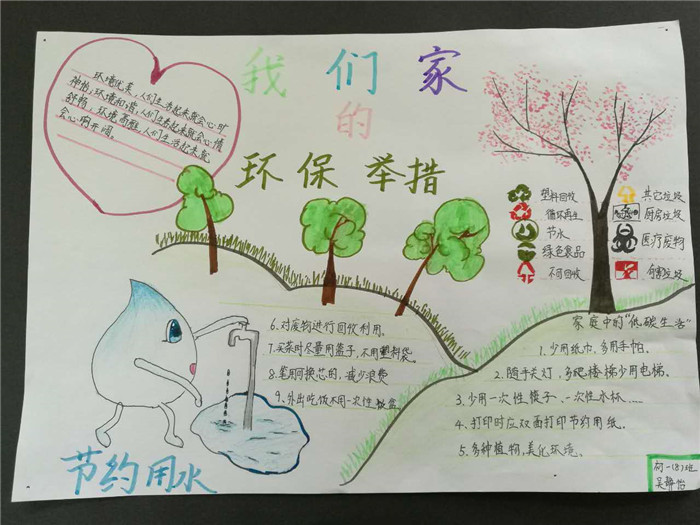 我们家
的
环保举措
环境优美,人们生活起来就会心旷
神怡,环境和谐,人们生活起来就会心情
舒畅,环境高雅,人们生活起来就
会心朗开阔。
塑料回收
循环再生
节水
绿色食品
不可回收
其它垃圾
厨房垃圾
医疗废物
有害垃圾
家庭中的“低碳生活”
1.少用纸巾,多用手帕。
2.随手关灯,多爬楼梯少用电梯。
3.少用一次性筷子、一次性水杯……
4.打印时应双面打印节约用纸。
5.多种植物,美化环境。
6.对废物进行回收利用。
7.买菜时尽量用篮子,不用塑料袋。
8.笔用可换芯的,减少浪费
9.外出吃饭不用一次性餐盒。
节约用水
初一(8)班
吴静怡